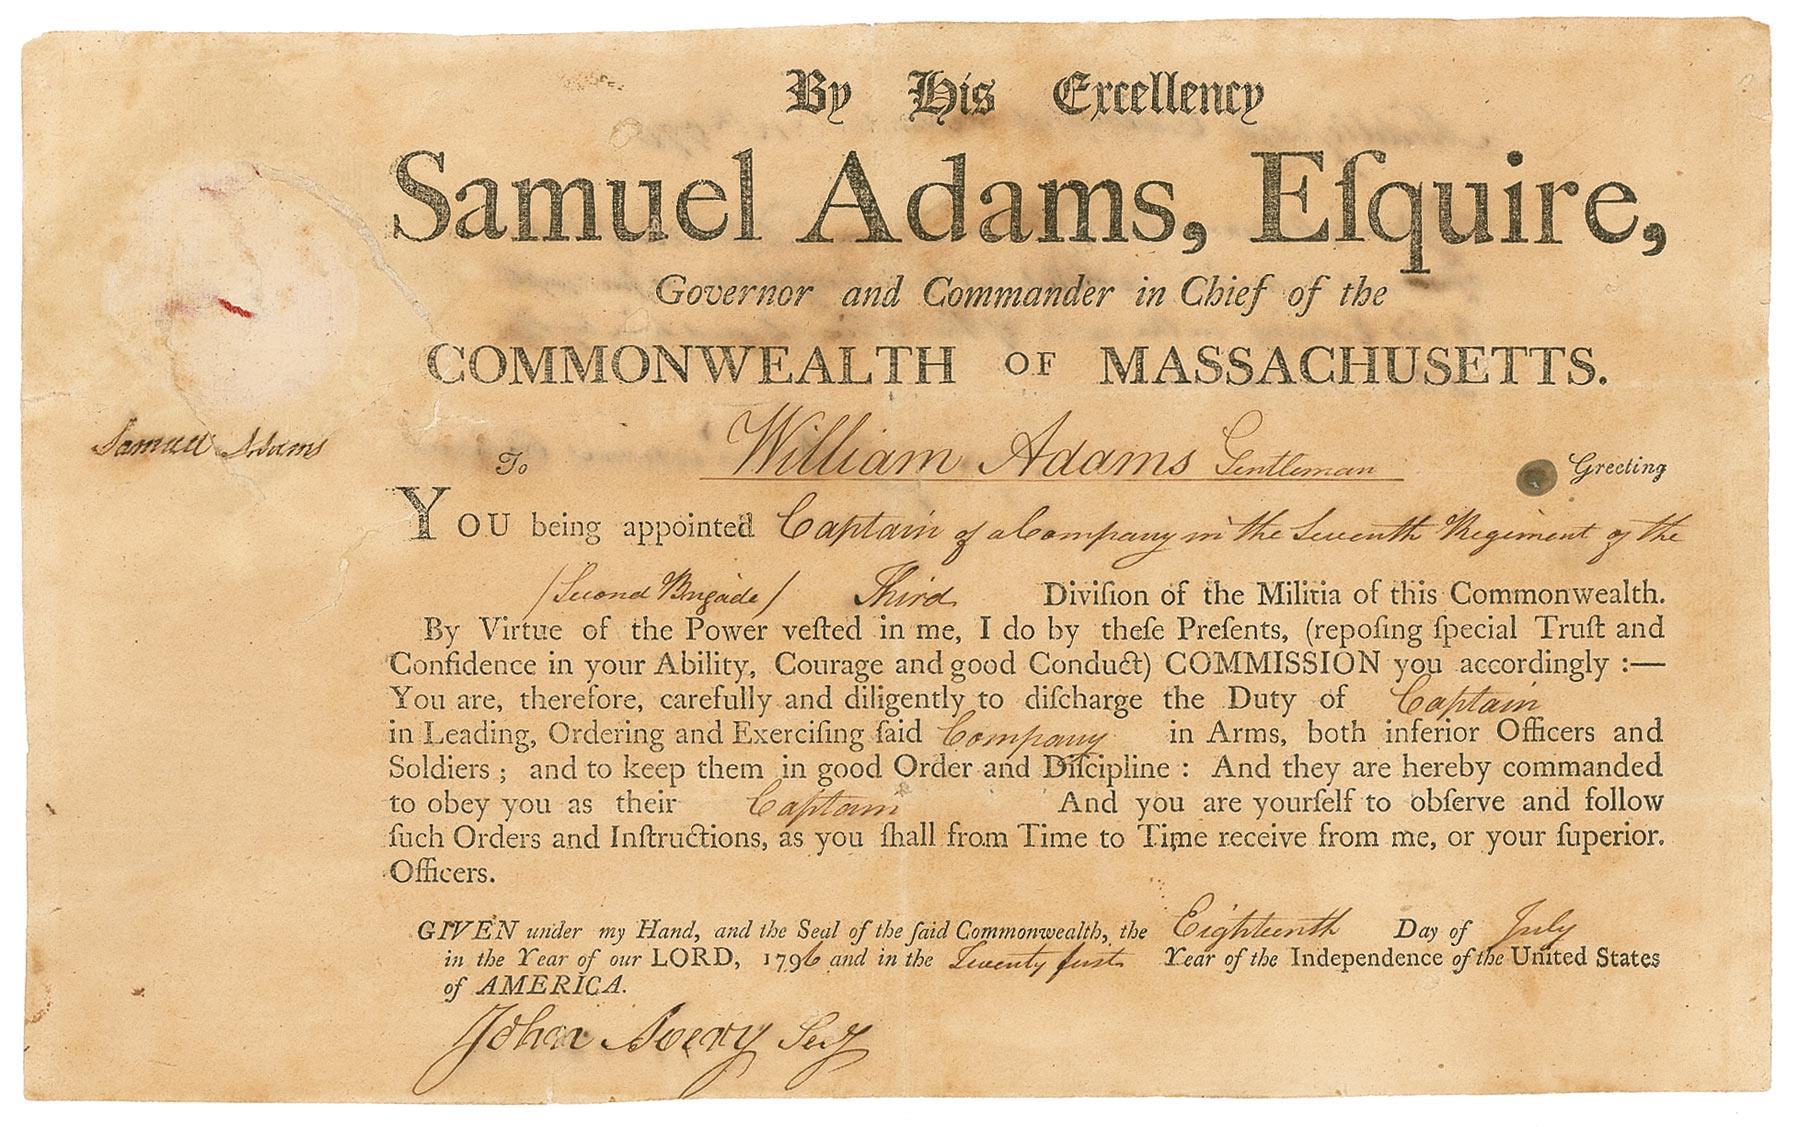 By His Excellency
Samuel Adams, Eſquire,
Governor and Commander in Chief of the
COMMONWEALTH OF MASSACHUSETTS.
Samuel Adams
To William Adams Gentleman Greeting
YOU being appointed Captain of a Company in the Seventh Regiment of the
/Second Brigade/ Third Diviſion of the Militia of this Commonwealth.
By Virtue of the Power veſted in me, I do by theſe Preſents, (repoſing ſpecial Truſt and
Confidence in your Ability, Courage and good Conduct) COMMISSION you accordingly :—
You are, therefore, carefully and diligently to diſcharge the Duty of Captain
in Leading, Ordering and Exerciſing ſaid Company in Arms, both inferior Officers and
Soldiers ; and to keep them in good Order and Diſcipline : And they are hereby commanded
to obey you as their Captain And you are yourſelf to obſerve and follow
ſuch Orders and Inſtructions, as you ſhall from Time to Time receive from me, or your ſuperior.
Officers.
GIVEN under my Hand, and the Seal of the ſaid Commonwealth, the Eighteenth Day of July
in the Year of our LORD, 1796 and in the Twenty first Year of the Independence of the United States
of AMERICA.
John Avery Secy